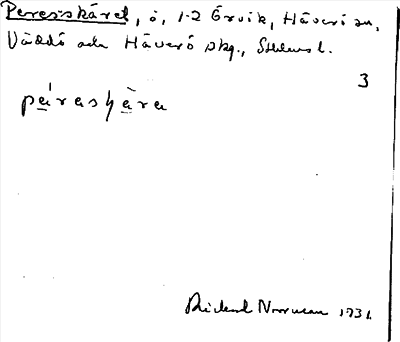 Peres-skäret, ö, 1-2 Örvik, Häverö sn,
Väddö och Häverö skg., Sthlms l.
3
páraskàra
Rickard Norrman 1931.